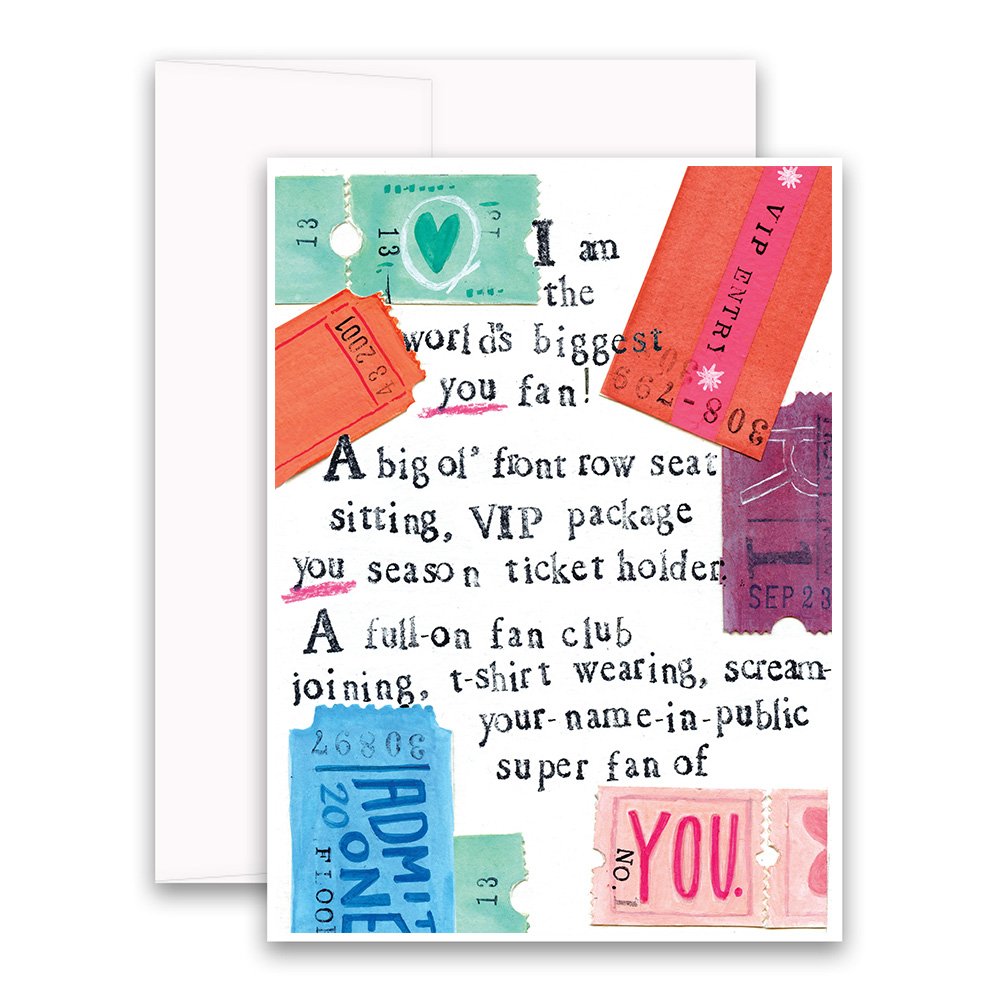 13
13
I am
the
world's biggest
you fan!
A big ol' front row seat
sitting, VIP package
you season ticket holder.
A full-on fan club
joining, t-shirt wearing, scream-
your-name-in-public
super fan of
YOU.
NO.
VIP ENTRY
308-799
43 2001
1
SEP 23
30897
ADMIT
ONE
20
FLOOR
13